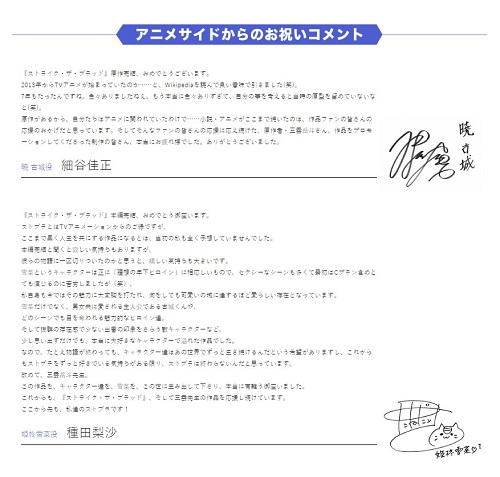 アニメサイドからのお祝いコメント
『ストライク・ザ・ブラッド』原作完結、おめでとうございます。
2013年からTVアニメが始まっていたのか……と、Wikipediaを読んで良い意味で引きました(笑)。
7年もたったんですね。色々ありましたねえ。もう本当に色々ありすぎて、自分の事を考えると当時の原型を留めていないな
と(笑)。
原作があるから、自分たちはアニメに関われていたわけで……小説・アニメがここまで続いたのは、作品ファンの皆さんの
応援のおかげだと思っています。そしてそんなファンの皆さんの応援に応え続けた、原作者・三雲岳斗さん、作品をプロモ
ーションしてくださった制作の皆さん、本当にお疲れ様でした。ありがとうございました。
暁 古城
暁 古城役 細谷佳正
『ストライク・ザ・ブラッド』本編完結、おめでとう御座います。
ストブラとはTVアニメーションからのご縁ですが、
ここまで長く人生を共にする作品になるとは、当初の私も全く予想していませんでした。
本編完結と聞くと寂しい気持ちもありますが、
彼らの物語に一区切りついたのかと思うと、嬉しい気持ちも大きいです。
雪菜というキャラクターは正に「理想の年下ヒロイン」に相応しいもので、セクシーなシーンも多くて最初はCプラン含めと
ても演じるのに苦労しましたが（笑）、
私自身も今ではその魅力に大変胸を打たれ、何をしても可愛いの域に達するほど愛らしい存在となっています。
雪菜だけでなく、男女共に愛される主人公である古城くんや、
どのシーンでも目を奪われる魅力的なヒロイン達。
そして抜群の存在感で少ない出番の印象をさらう敵キャラクターなど、
少し思い出すだけでも、本当に大好きなキャラクターで溢れた作品でした。
なので、たとえ物語が終わっても、キャラクター達はあの世界でずっと生き続けるんだという希望がありますし、これから
もストブラをずっと好きでいる気持ちがある限り、ストブラは終わらないんだと思っています。
改めて、三雲岳斗先生。
この作品を、キャラクター達を、雪菜を、この世に生み出して下さり、本当に有難う御座いました。
これからも、『ストライク・ザ・ブラッド』、そして三雲先生の作品を応援し続けています。
ここから先も、私達のストブラです！
姫柊雪菜
姫柊雪菜役 種田梨沙